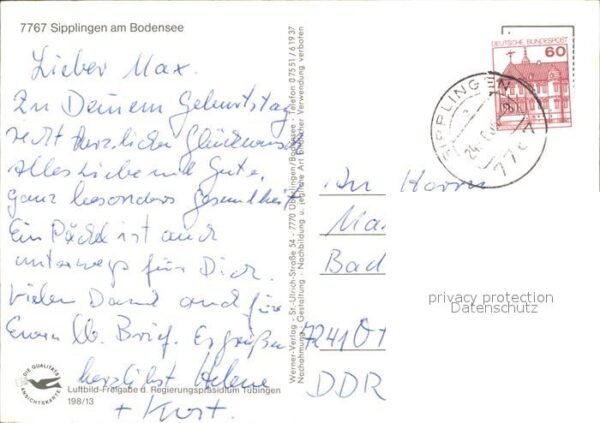 7767 Sipplingen am Bodensee
Lieber Max.
Zu Deinem Geburtstag
recht herzlichen Glückwunsch
Alles Liebe und Gute,
ganz besonders Gesundheit
Ein Päckl ist auch
unterwegs für Dich.
Vielen Dank auch für
Euern lb. Brief. Es grüßen
herzlichst Helene
+ Kurt.
DIE QUALITÄTS
ANSICHTSKARTE
Luftbild-Freigabe d. Regierungspräsidium Tübingen
198/13
Werner-Verlag - St.-Ulrich-Straße 54 - 7770 Überlingen/Bodensee Telefon 0 75 51 / 6 19 37
Nachahmung - Gestaltung - Nachbildung u. jegliche Art bildlicher Verwendung verboten
DEUTSCHE BUNDESPOST
60
SIPPLINGEN
7767
An Herrn
Ma.
Bad
7241 Ot
DDR
privacy protection
Datenschutz